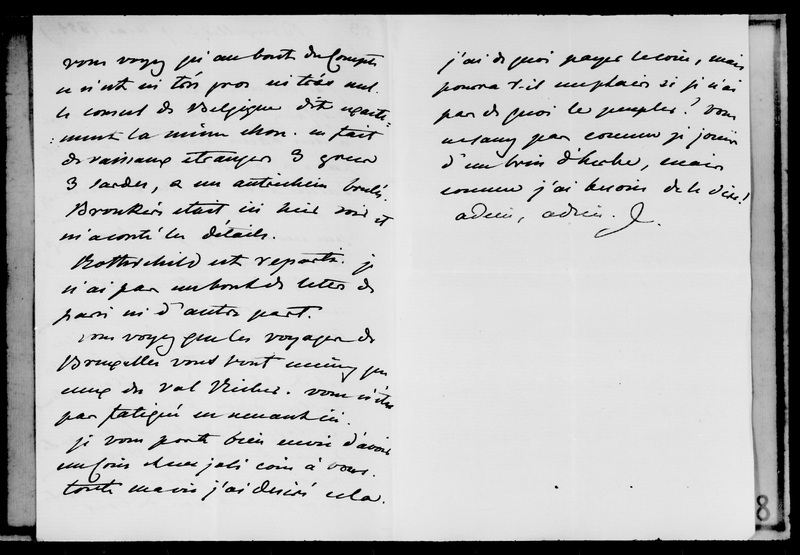 vous voyez qu'au bout du Compte
ce n'est ni très gros ni très nul.
le consul de Belgique dit exacte-
:ment la même chose. en fait
de vaisseaux étrangers 3 grecs
3 sardes, & un autrichien brulés.
Brouckère etait ici hier soir et
m'a conté les détails.
Rothschild est reparti. je
n'ai pas un bout de lettre de
paris ni d'autre part.
vous voyez que les voyages de
Bruxelles vous vont mieux que
ceux du Val Richer. vous n'êtes
pas fatigué en venant ici.
je vous porte bien envie d'avoir
un Coin chez un joli coin à vous.
toute ma vie j'ai desiré cela.
j'ai de quoi payer le coin, mais
pourra t-il me plaire si je n'ai
pas de quoi le peupler? Vous
ne savez pas comme je jouis
d'un brin d'herbe, mais
comme j'ai besoin de le dire!
adieu, adieu.
8